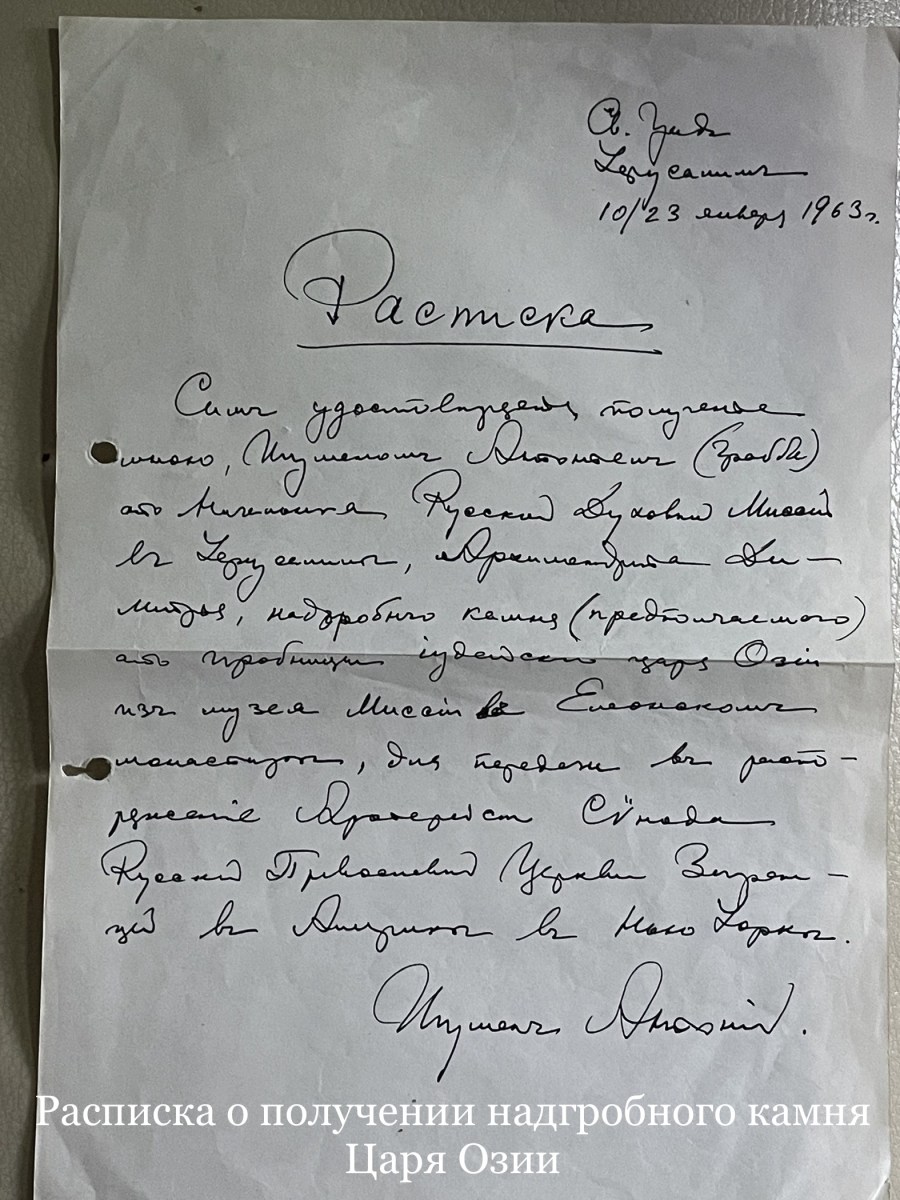 Св. Градъ
Іерусалимъ
10/23 января 1963 г.
Расписка
Симъ удостовѣряется полученіе
мною, Игуменомъ Антоніемъ (Граббе)
отъ Начальника Русской Духовной Миссіи
въ Іерусалимѣ, Архимандрита Ди-
митрія, надгробнаго камня (предпочитаемого)
отъ гробницы іудейскаго царя Озіи
изъ музея Миссіи въ Елеонскомъ
монастырѣ, для передачи въ распо-
ряженіе Архіерейск. Сѵнода
Русской Православной Церкви Заграни-
цей въ Америкѣ въ Нью Іоркѣ.
Игуменъ Антоній.
Расписка о получении надгробного камня
Царя Озии